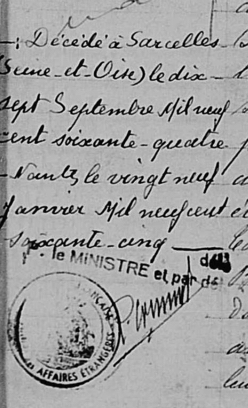 -: Décédé à Sarcelles
(Seine-et-Oise) le dix-
sept Septembre Mil neuf
cent soixante-quatre
- Nantes, le vingt neuf
Janvier Mil neuf cent
soixante-cinq
le MINISTRE et par dél
AFFAIRES ÉTRANGÈRES